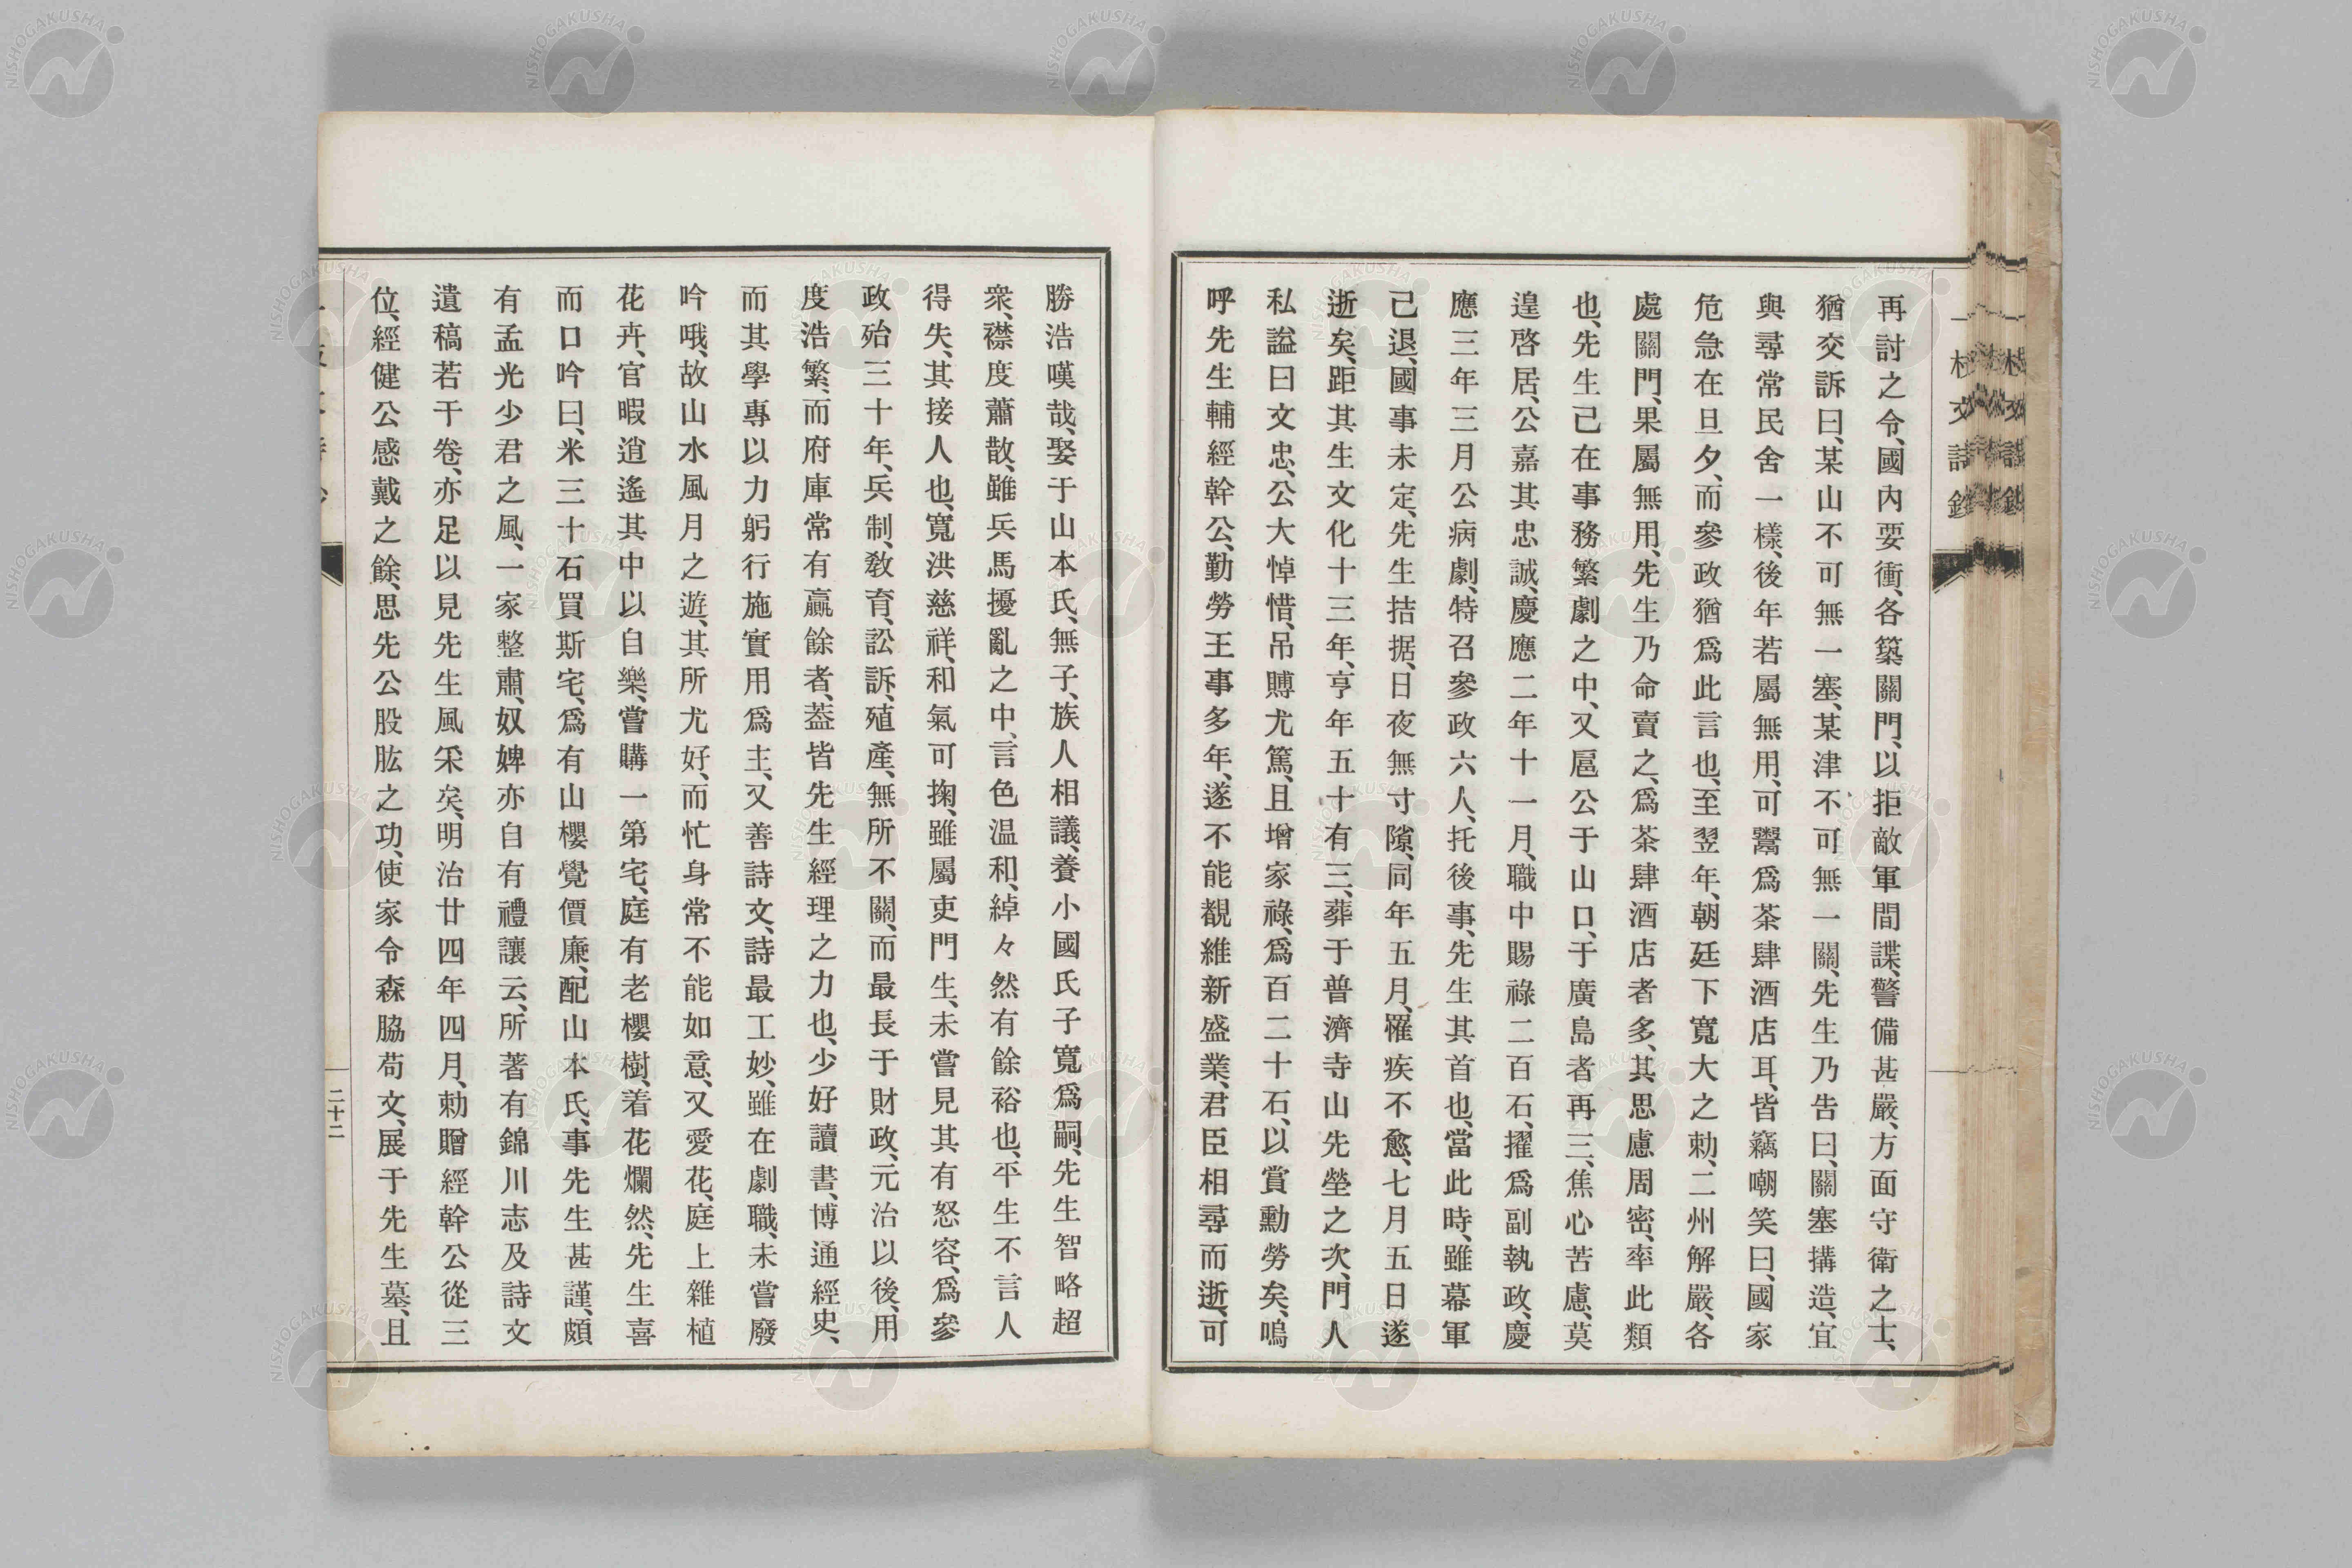 再討之令、國內要衝、各築關門、以拒敵軍間諜、警備甚嚴、方面守衛之士、
猶交訴曰、某山不可無一塞、某津不可無一關、先生乃告曰、關塞搆造、宜
與尋常民舍一樣、後年若屬無用、可鬻爲茶肆酒店耳、皆竊嘲笑曰、國家
危急在旦夕、而參政猶爲此言也、至翌年、朝廷下寬大之勅、二州解嚴、各
處關門、果屬無用、先生乃命賣之、爲茶肆酒店者多、其思慮周密、率此類
也、先生已在事務繁劇之中、又扈公于山口、于廣島者再三、焦心苦慮、莫
遑啓居、公嘉其忠誠、慶應二年十一月、職中賜祿二百石、擢爲副執政、慶
應三年三月公病劇、特召參政六人、托後事、先生其首也、當此時、雖幕軍
已退、國事未定、先生拮据、日夜無寸隙、同年五月、罹疾不愈、七月五日遂
逝矣、距其生文化十三年、亨年五十有三、葬于普濟寺山先塋之次、門人
私謚曰文忠、公大悼惜、吊賻尤篤、且增家祿、爲百二十石、以賞勳勞矣、嗚
呼先生輔經幹公、勤勞王事多年、遂不能覩維新盛業、君臣相尋而逝、可
勝浩嘆哉、娶于山本氏、無子、族人相議、養小國氏子寬爲嗣、先生智略超
衆、襟度蕭散、雖兵馬擾亂之中、言色温和、綽々然有餘裕也、平生不言人
得失、其接人也、寬洪慈祥、和氣可掬、雖屬吏門生、未嘗見其有怒容、爲參
政殆三十年、兵制、敎育、訟訴、殖產、無所不關、而最長于財政、元治以後、用
度浩繁、而府庫常有贏餘者、蓋皆先生經理之力也、少好讀書、博通經史、
而其學專以力躬行施實用爲主、又善詩文、詩最工妙、雖在劇職、未嘗廢
吟哦、故山水風月之遊、其所尤好、而忙身常不能如意、又愛花、庭上雜植
花卉、官暇逍遙其中以自樂、嘗購一第宅、庭有老櫻樹、着花爛然、先生喜
而口吟曰、米三十石買斯宅、爲有山櫻覺價廉、配山本氏、事先生甚謹、頗
有孟光少君之風、一家整肅、奴婢亦自有禮讓云、所著有錦川志及詩文
遺稿若干卷、亦足以見先生風采矣、明治廿四年四月、勅贈經幹公從三
位、經健公感戴之餘、思先公股肱之功、使家令森脇苟文、展于先生墓、且
二十二